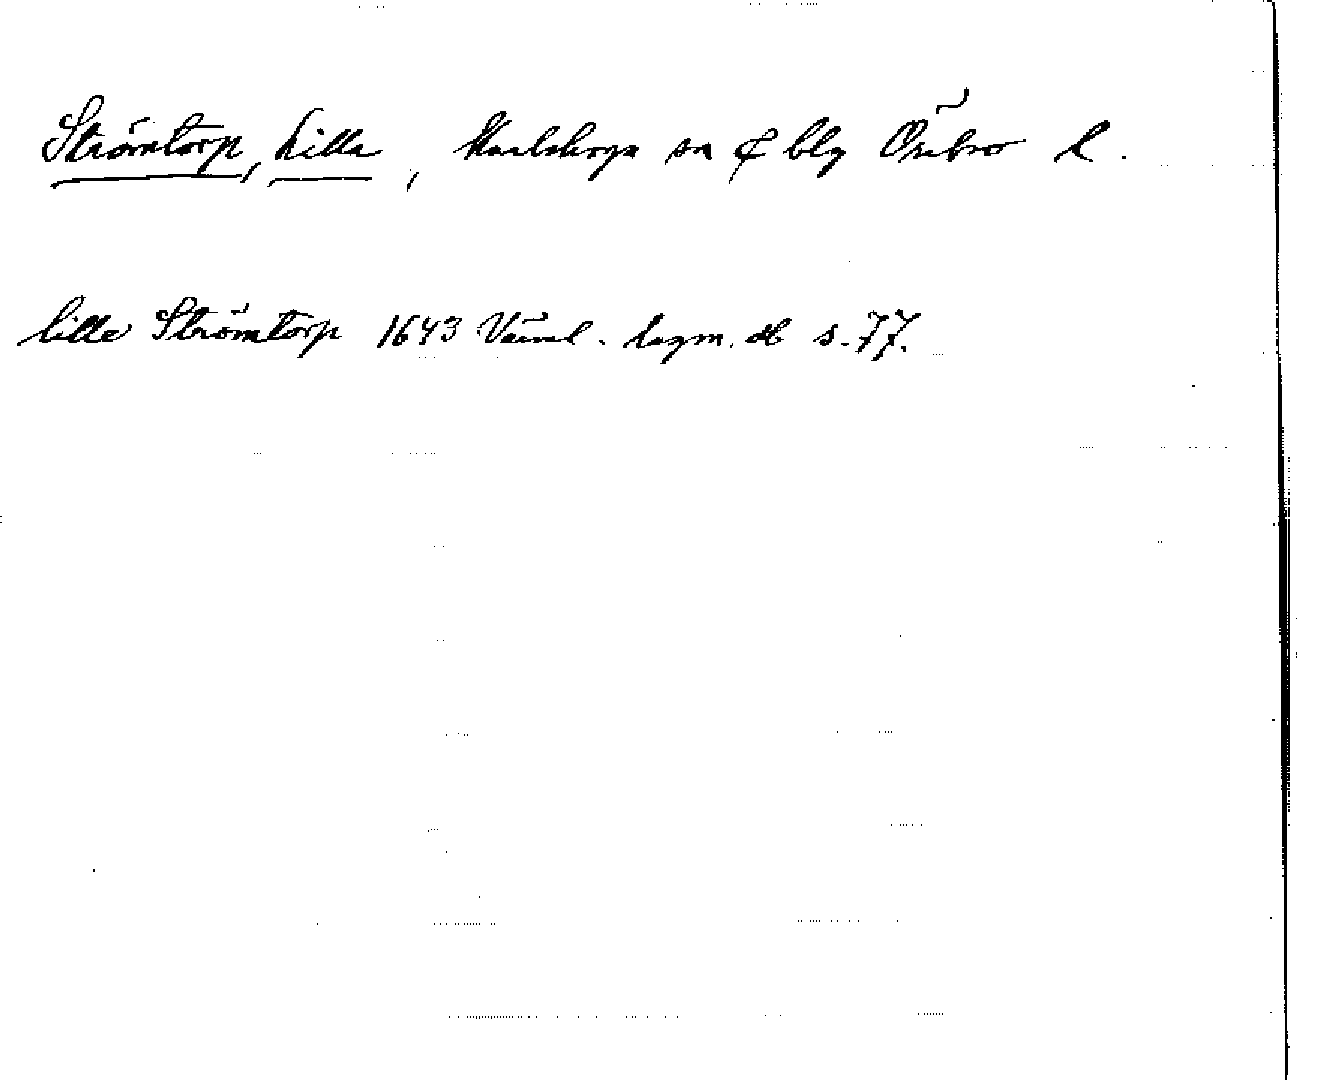 Strömtorp, Lilla, Karlskoga sn & blg Örebro l.
lille Strömtorp 1643 Värml. lagm. db s. 77.